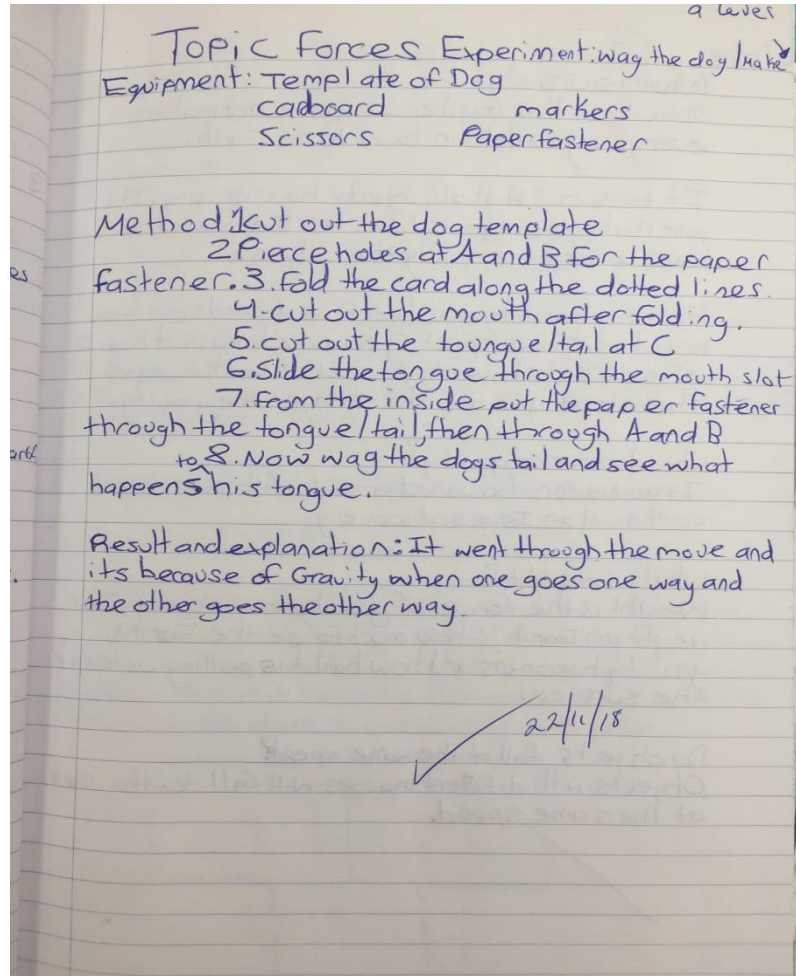 a Lever
Topic Forces Experiment: wag the dog / Make
Equipment: Template of Dog
cadboard markers
Scissors Paper fastener
Method 1 cut out the dog template
2 Pierce holes at A and B for the paper
es
fastener. 3. fold the card along the dotted lines.
4. cut out the mouth after folding.
5. cut out the toungue/tail at C
6. Slide the tongue through the mouth slot
7. from the inside put the paper fastener
through the tongue/tail, then through A and B
to 8. Now wag the dogs tail and see what
happens his tongue.
Result and explanation: It went through the move and
its because of Gravity when one goes one way and
the other goes the other way.
22/11/18